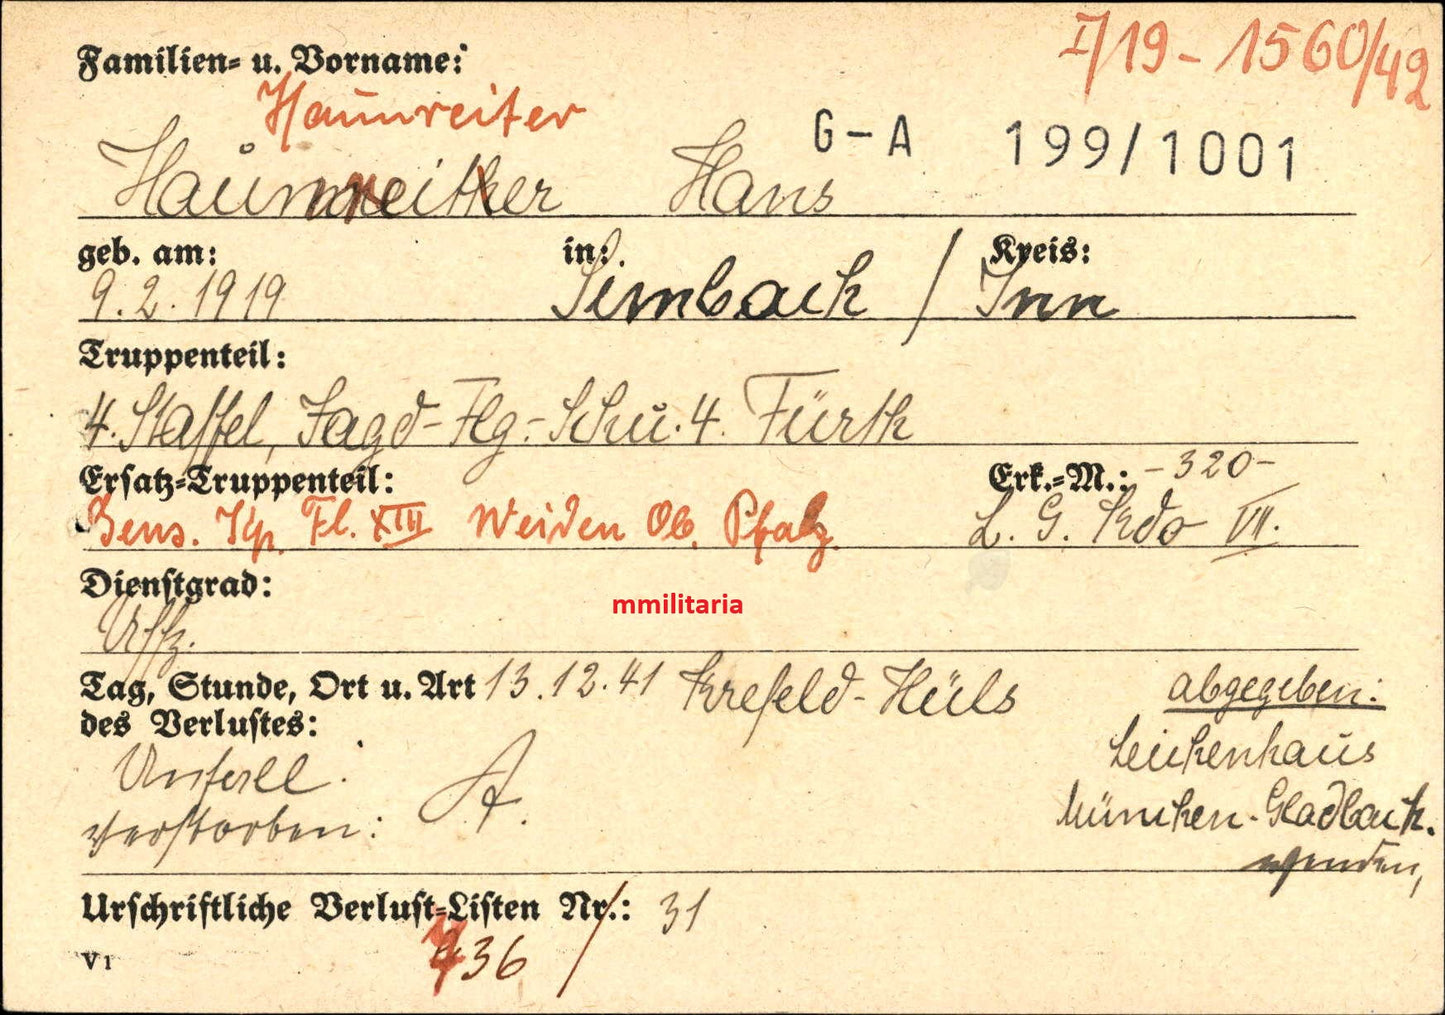 I/19-1560/42
Familien- u. Vorname:
Haunreiter
G-A 199/1001
Haunreiter Hans
geb. am: in: Kreis:
9.2.1919 Simbach / Inn
Truppenteil:
4. Staffel, Jagd-Flg.-Schu. 4. Fürth
Ersatz-Truppenteil: Erk.-M.: -320-
Gens. Kp. Fl. XIII Weiden Ob. Pfalz. L. G. Kdo VII.
Dienstgrad:
mmilitaria
Uffz.
Tag, Stunde, Ort u. Art 13.12.41 Krefeld-Hüls abgegeben:
des Verlustes:
Leichenhaus
Unfall.
verstorben: A.
München-Gladbach.
wenden,
Urschriftliche Verlust-Listen Nr.: 31
36
V1